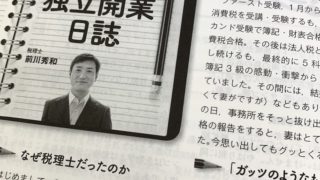 独立開業
日誌
税理士
前川秀和
なぜ税理士だったのか
ファースト受験、1月から
消費税を受講・受験するも、
カンド受験で簿記・財表合格
費税合格。その後は法人税と
し続けるも、最終的に5科
簿記3級の感動・衝撃から
ていました。その間には、結
くて妻がですが）などもあり
の日、事務所をそっと抜け出
格の報告をすると、妻はとて
た。今思い出してもグッとく
「ガッツのようなも